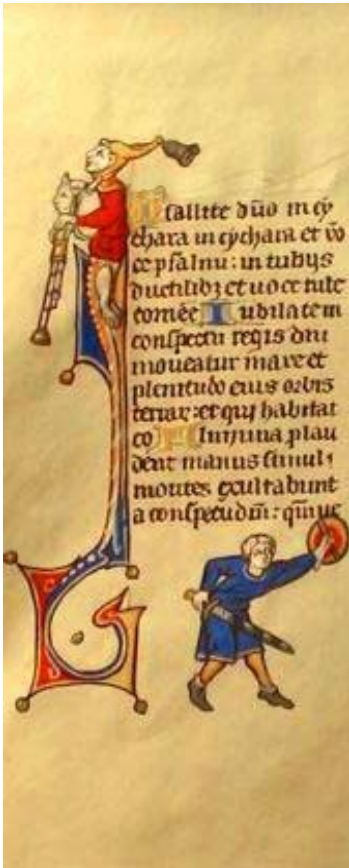 Psallite dño in cy
chara in cychara et vo
ce psalmi: in tubijs
ductilibz et uoce tube
cornee Iubilate in
conspectu regis dni
moueatur mare et
plenitudo eius orbis
terrar: et qui habitāt
eo Flumina plau
dent manus simul:
montes exultabunt
a conspectu dm̄: qm̄ ue